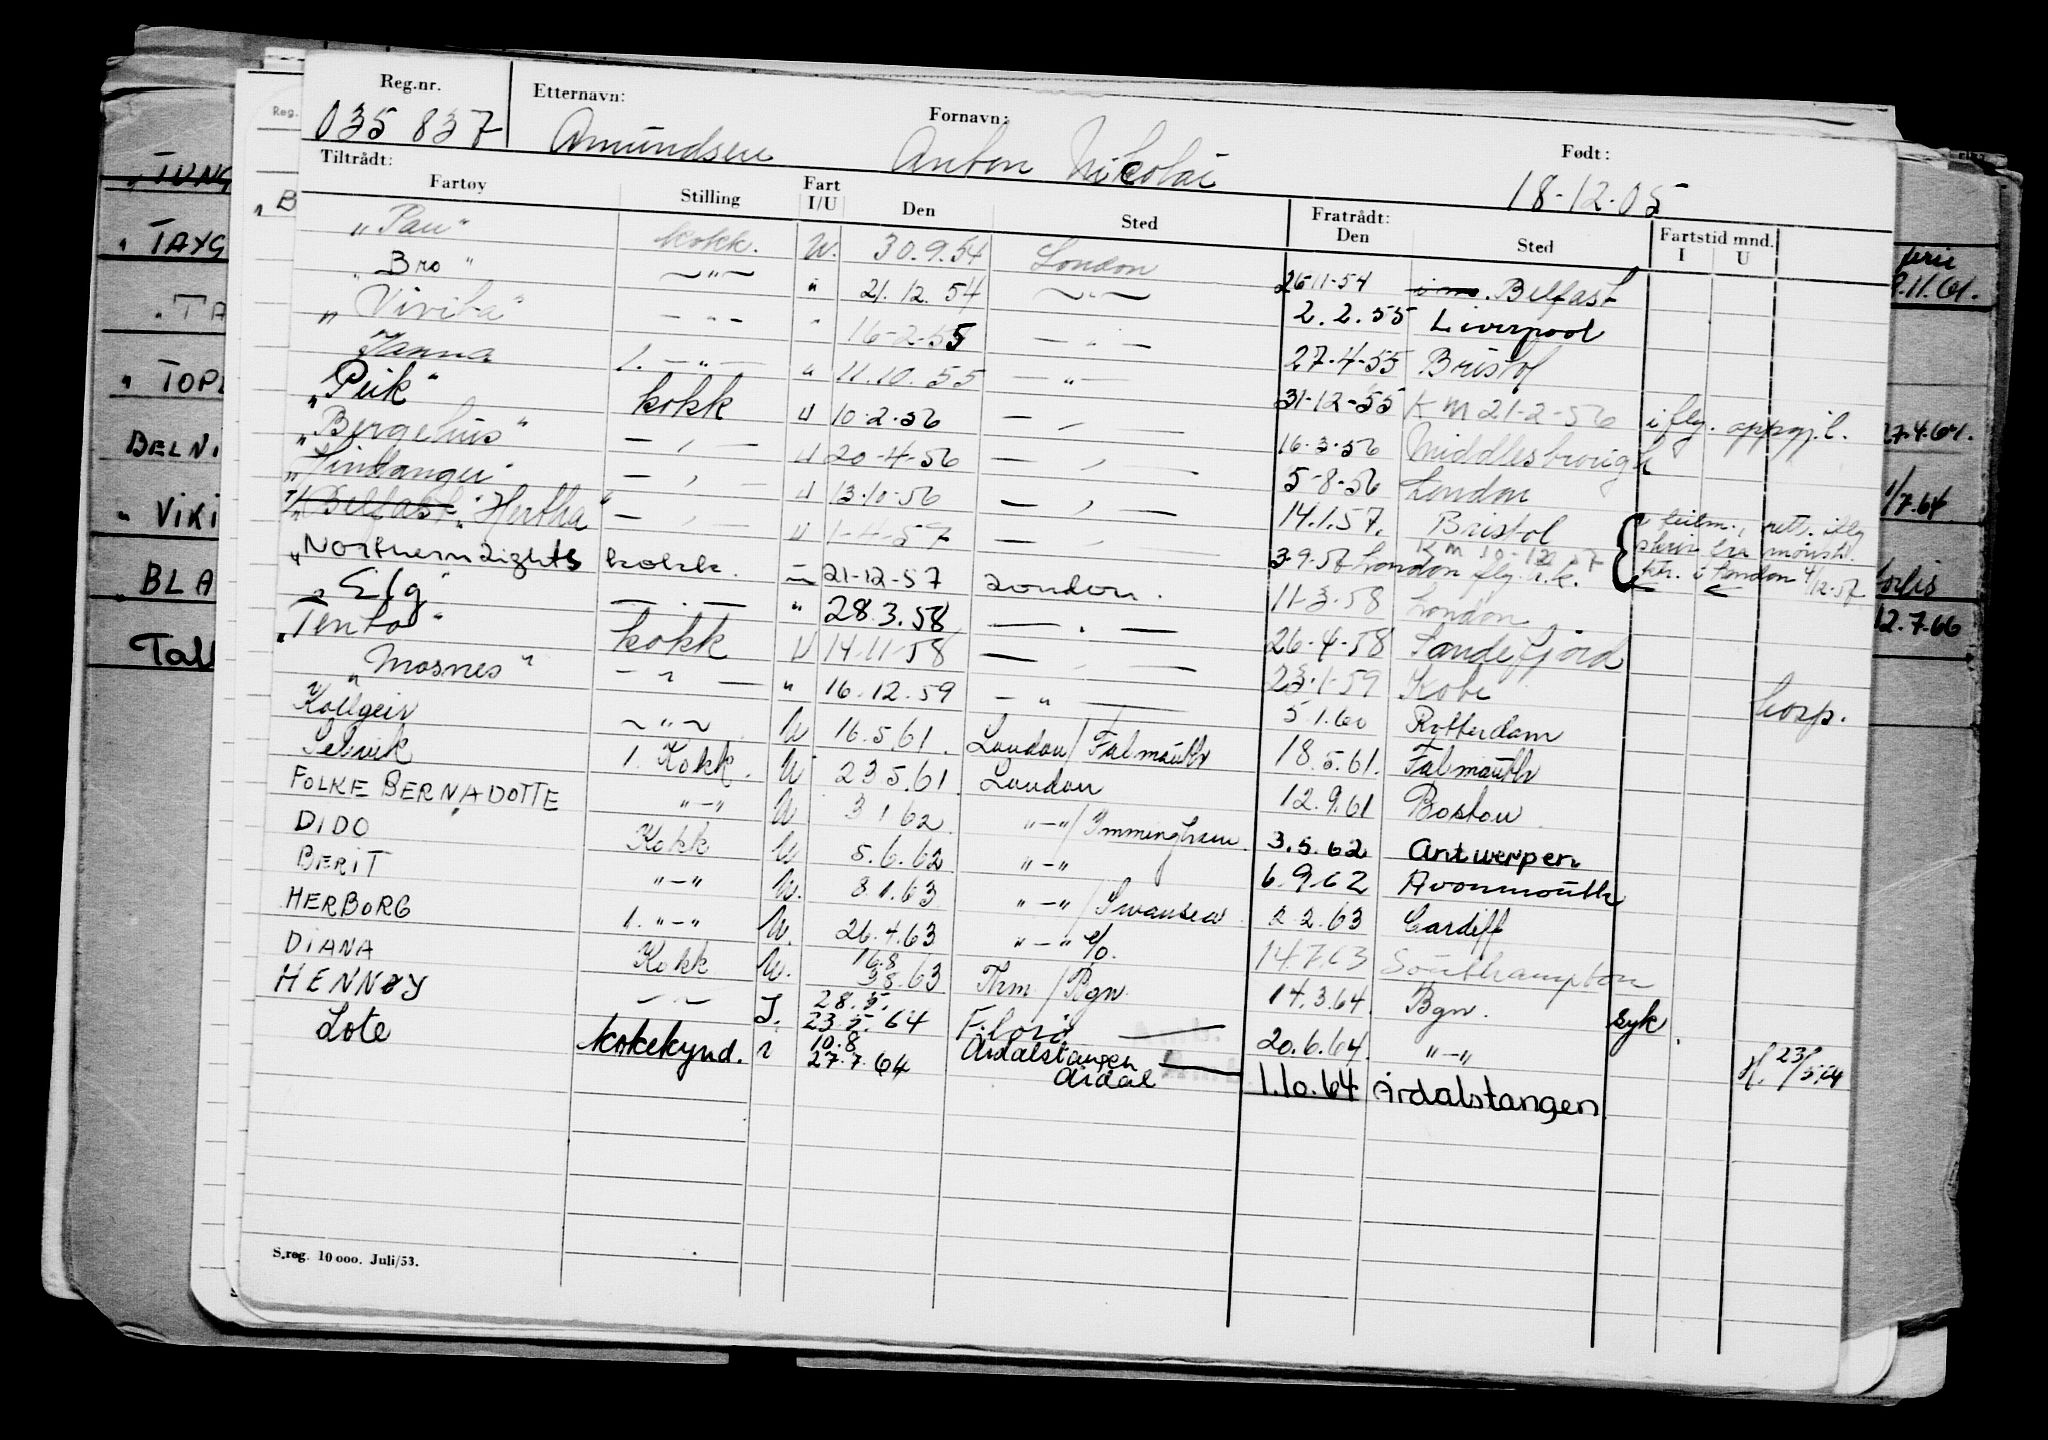 Reg.nr. Etternavn: Fornavn: Født:
035 837 Amundsen Anton Nikolai 18-12-05
Tiltrådt: Fratrådt: Fartstid mnd.
Fartøy Stilling Fart I/U Den Sted Den Sted I U
„Pan" kokk. U. 30.9.54 London 26-11-54 Belfast
„Bro" —"— " 21.12.54 —"— 2.2.55 Liverpool
„Virita" —"— " 16-2-55 —"— 27-4-55 Bristol
Janna 1. —"— " 11.10.55 —"— 31-12-55 KM 21-2-56 i flg. oppgj. l.
„Piik" kokk U 10-2-56 —"— 16-3-56 Middlesbrough
„Bergehus" —"— U 20-4-56 —"— 5-8-56 London
„Vindanger" —"— U 13-10-56 —"— 14.1.57. Bristol
T/T Belfast „Hertha" —"— U 1-4-57 —"— 3-9-57 London flg. r.k. KM 10-12-57 4/12-57
„Northern Lights kokk. — 21-12-57 London. 11-3-58 London
„Elg" —"— " 28.3.58 —"— 26-4-58 Sandefjord
„Tento" kokk U 14-11-58 —"— 23-1-59 Kobe hosp.
„Mosnes" —"— " 16.12.59 —"— 5.1.60 Rotterdam
Kollgeir —"— U 16.5.61. London/Falmouth 18.5.61. Falmouth
Selvik 1. Kokk. U 23 5.61. London 12.9.61 Boston
FOLKE BERNADOTTE "—" U 3 1 62. "—"/Immingham. 3.5.62 Antwerpen
DIDO Kokk U 5.6.62 "—" 6.9.62 Avonmouth
BERIT "—" U. 8 1.63 "—"/Swansea 2 2.63 Cardiff
HERBORG 1. "—" U. 26.4.63 "—" %. 14.7.63 Southampton
DIANA Kokk U. 16.8 3 8.63 Thm/Bgn. 14.3.64. Bgn. syk
HENNØY —"— I. 28.5. 23 5.64 Florø 20.6.64. "—" H. 23/5.64
Lote kokekynd. i 10.8 27.7.64 Årdalstangen Årdal 1.10.64 Årdalstangen
S.reg. 10 000. Juli/53.
Reg.
„B
„TAYG
„TA
„TOPL
BELNI
„VIKI
„BLA
TALL
.11.61.
27.4.61.
1/7.64
12.7.66